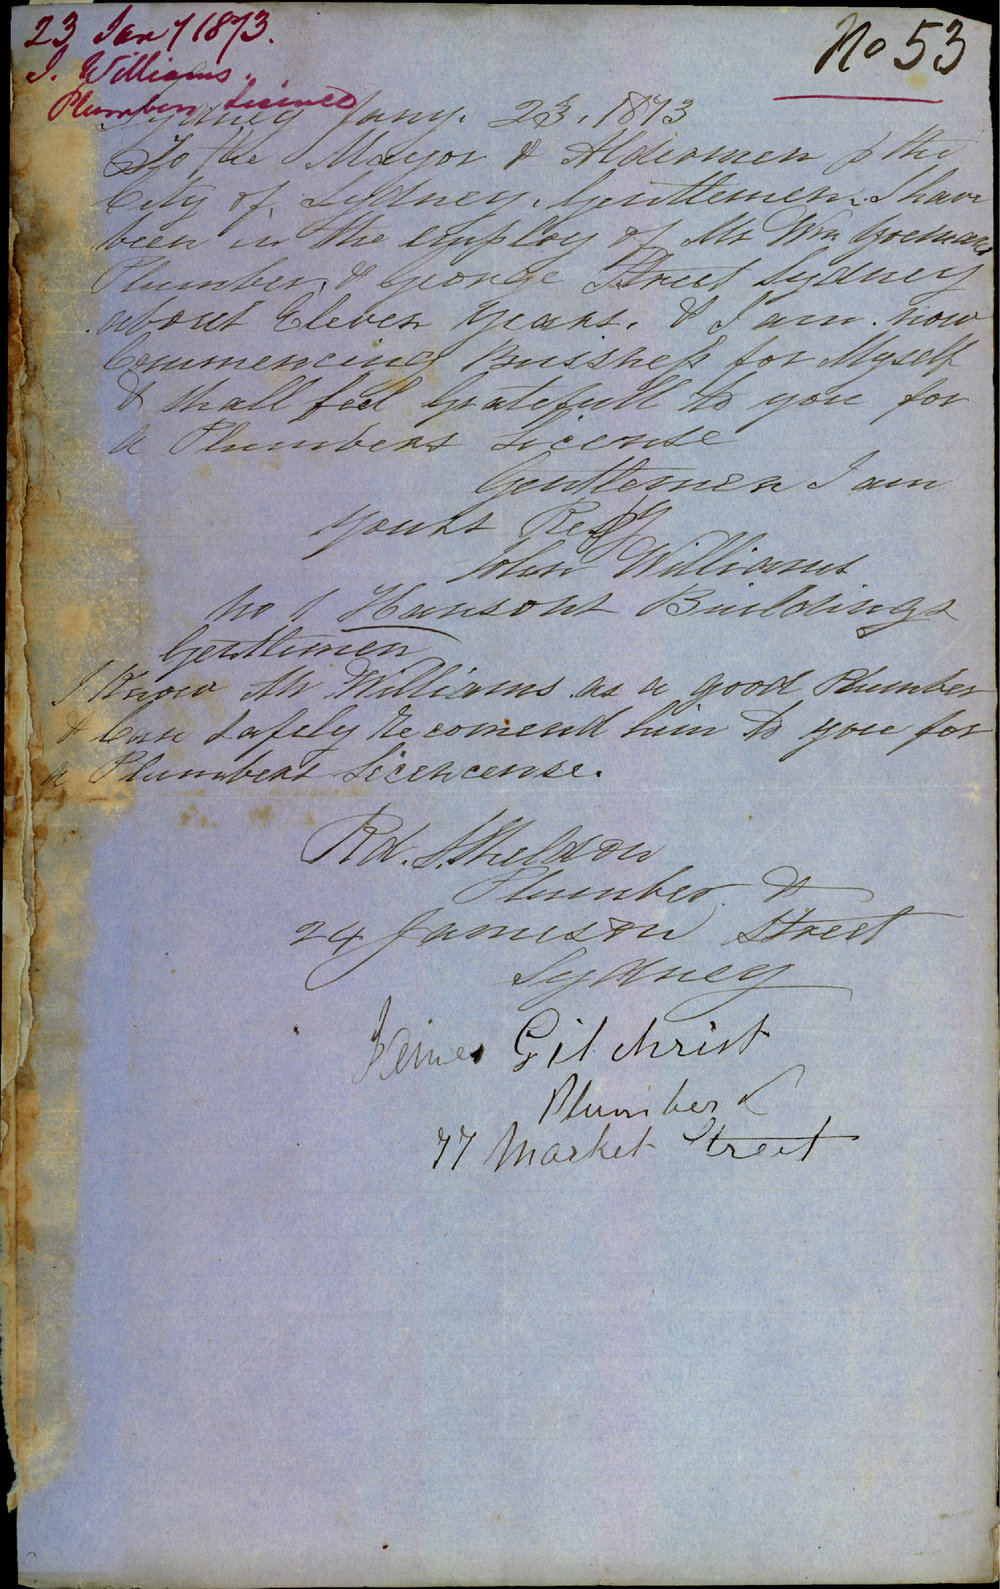 23 Jany 1873.
J. Williams.
Plumbers License
No 53
Sydney Jany. 23, 1873
To the Mayor & Aldermen of the
City of Sydney. Gentlemen. I have
been in the employ of Mr Wm
Plumber, & George Street Sydney
about Eleven Years. & I am now
Commencing Bussness for Myself
& shall feel Gratefull to you for
a Plumbers License
Gentlemen I am
yours Resp
John Williams
No 1 Hansons Buildings
Gentlemen
I Know Mr Williams as a good Plumber
& Can Safely Recomend him to you for
a Plumbers Licencense.
Rd. Sheldon
Plumber &
24 Jamison Street
Sydney
James Gilchrist
Plumber &
77 Market Street